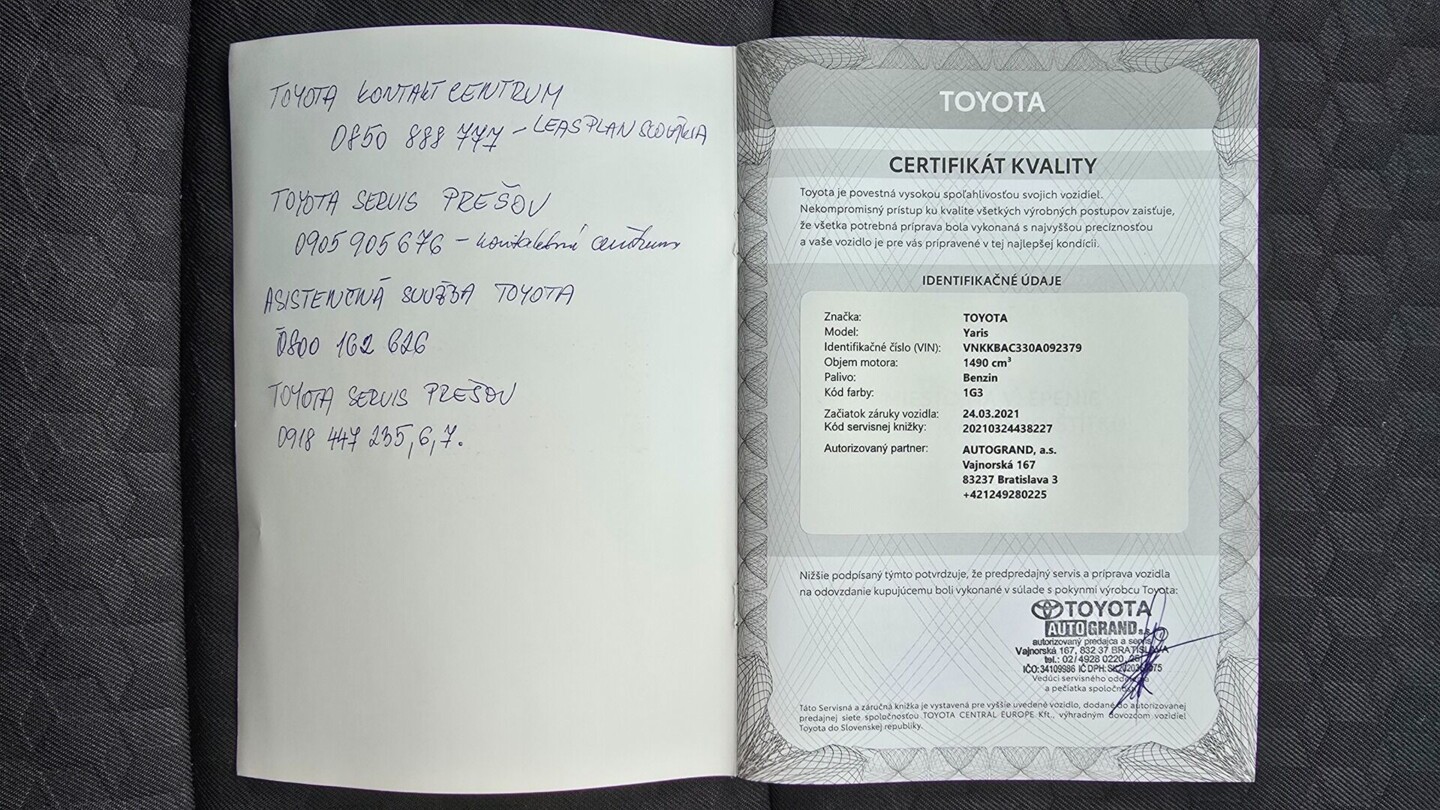 TOYOTA KONTAKT CENTRUM
0850 888 777 - LEASPLAN SLOVAKIA
TOYOTA SERVIS PREŠOV
0905 905 676 - kontaktné centrum
ASISTENČNÁ SLUŽBA TOYOTA
0800 162 626
TOYOTA SERVIS PREŠOV
0918 447 235,6,7.
TOYOTA
CERTIFIKÁT KVALITY
Toyota je povestná vysokou spoľahlivosťou svojich vozidiel.
Nekompromisný prístup ku kvalite všetkých výrobných postupov zaisťuje,
že všetka potrebná príprava bola vykonaná s najvyššou precíznosťou
a vaše vozidlo je pre vás pripravené v tej najlepšej kondícii.
IDENTIFIKAČNÉ ÚDAJE
Značka: TOYOTA
Model: Yaris
Identifikačné číslo (VIN): VNKKBAC330A092379
Objem motora: 1490 cm³
Palivo: Benzin
Kód farby: 1G3
Začiatok záruky vozidla: 24.03.2021
Kód servisnej knižky: 20210324438227
Autorizovaný partner: AUTOGRAND, a.s.
Vajnorská 167
83237 Bratislava 3
+421249280225
Nižšie podpísaný týmto potvrdzuje, že predpredajný servis a príprava vozidla
na odovzdanie kupujúcemu boli vykonané v súlade s pokynmi výrobcu Toyota:
TOYOTA
AUTO GRAND a.s.
autorizovaný predajca a servis
Vajnorská 167, 832 37 BRATISLAVA
tel.: 02/4928 0220
IČO: 34109986 IČ DPH:
Vedúci servisného
a pečiatka
Táto Servisná a záručná knižka je vystavená pre vyššie uvedené vozidlo, dodané do autorizovanej
predajnej siete spoločnosťou TOYOTA CENTRAL EUROPE Kft., výhradným dovozcom vozidiel
Toyota do Slovenskej republiky.